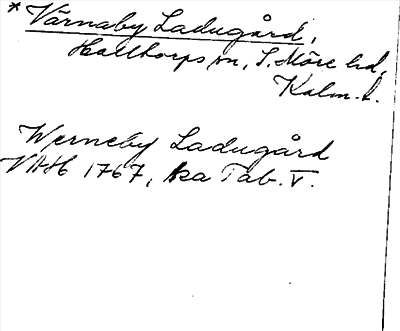 * Värnaby Ladugård,
Halltorps sn, S. Möre hd,
Kalm. l.
Werneby Ladugård
VAH 1767, Tab. V.